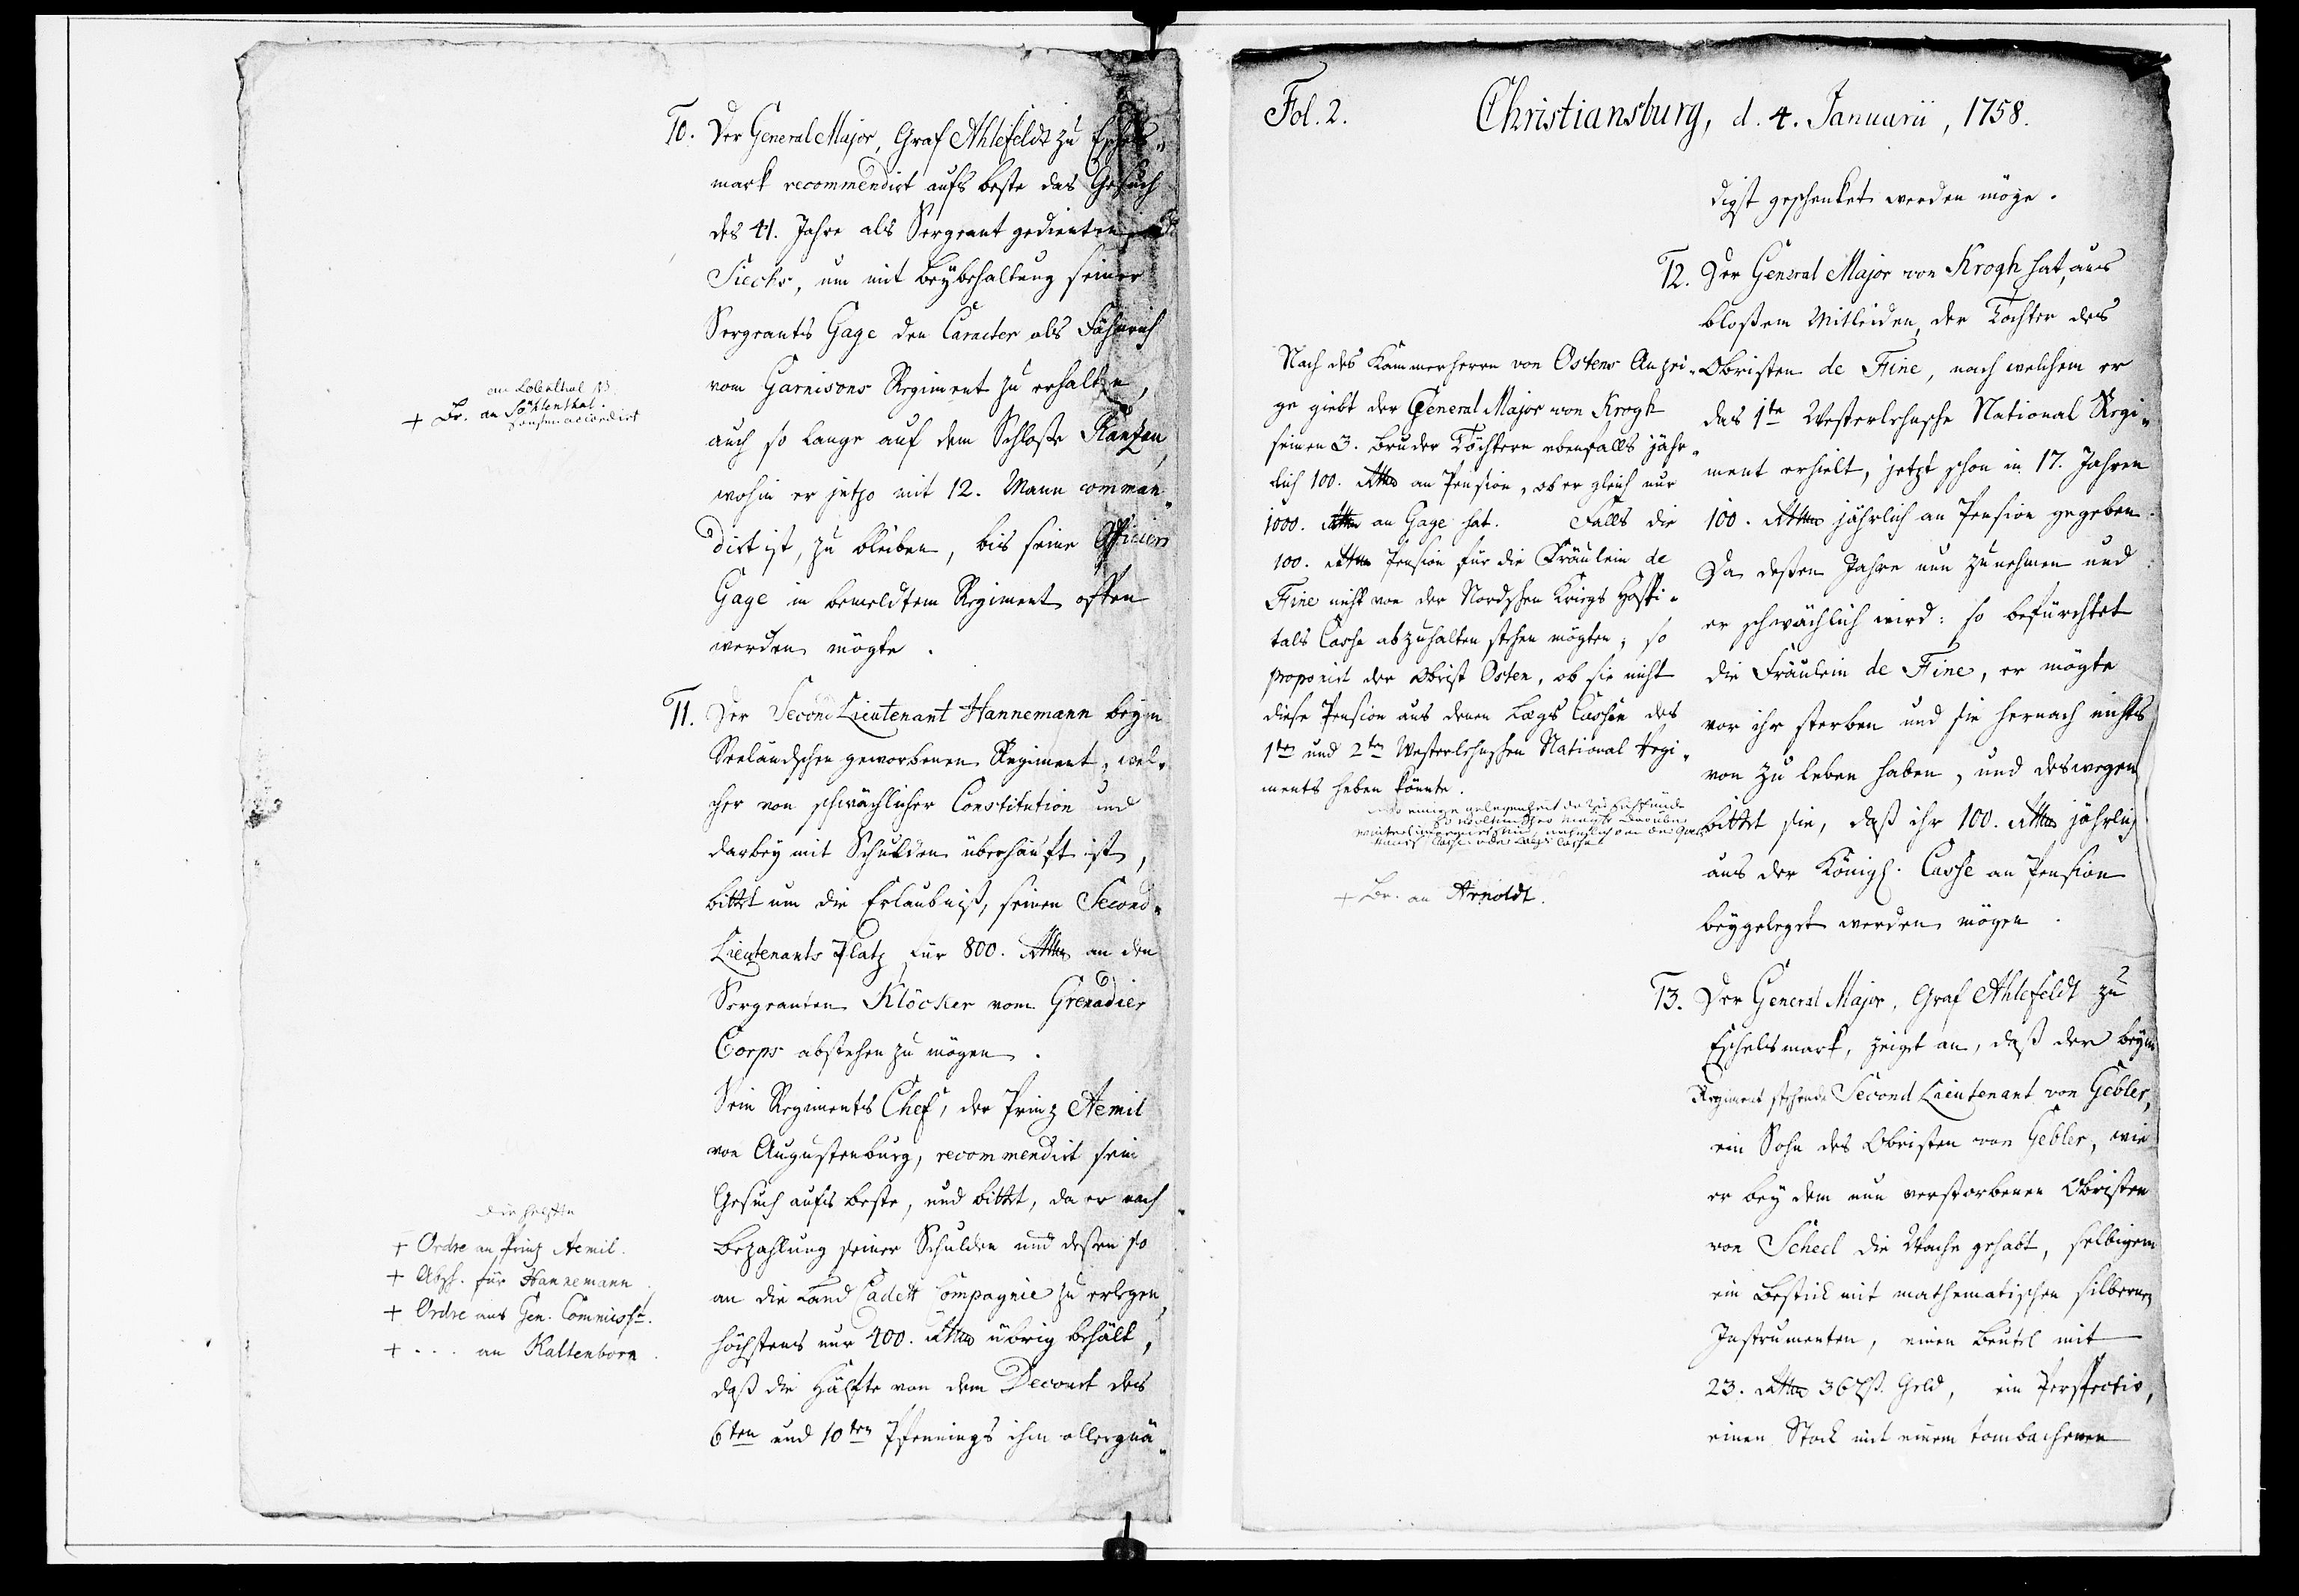 10. Der General Major, Graf Ahlefeldt zu Eschels„
mark recommendirt aufs beste das Gesuch
des 41. Jahre als Sergeant gedienten
Siecks, um mit Beybehaltung seiner
Sergeants Gage den Caracter als Fähnrich
vom Garnisons Regiment zu erhalten,
auch so lange auf dem Schloße Rantzau,
wohin er jetzo mit 12. Mann comman„
dirt ist, zu bleiben, bis seine Officiers
Gage in bemeldtem Regiment offen
werden mögte.
+ Br. an Söhlenthal.
accordirt
11. Der Second Lieutenant Hannemann beym
Seeländschen geworbenen Regiment, wel„
cher von schwächlicher Constitution und
darbey mit Schulden überhäuft ist,
bittet um die Erlaubniß, seinen Second„
Lieutenants Platz für 800. Rthlr an den
Sergeanten Klöcker vom Grenadier
Corps abstehen zu mögen.
Sein Regiments Chef, der Prinz Aemil
von Augustenburg, recommendirt sein
Gesuch aufs beste, und bittet, da er nach
Bezahlung seiner Schulden und dessen so
an die Land Cadett Compagnie zu erlegen,
höchstens nur 400. Rthlr übrig behält,
daß die Hälfte von dem Decourt des
6ten und 10ten Pfennings ihm allergnä„
die helfte
+ Ordre an Prinz Aemil.
+ Absch. für Hannemann.
+ Ordre ans Gen. Commisst.
+ . . . an Kaltenborn.
Fol. 2. Christiansburg, d. 4. Januarii, 1758.
digst geschenket werden möge.
12. Der General Major von Krogh hat, aus
bloßem Mitleiden, der Tochter des
Obristen de Fine, nach welchem er
das 1te Westerlehnsche National Regi„
ment erhielt, jetzt schon in 17. Jahren
100. Rthlr jährlich an Pension gegeben.
Da deßen Jahre nun zunehmen und
er schwächlich wird: so befürchtet
die Fräulein de Fine, er mögte
vor ihr sterben und sie hernach nichts
von zu leben haben, und deswegen
bittet sie, daß ihr 100. Rthlr jährlich
aus der Königl. Casse an Pension
beygelegt werden mögen.
Nach des Kammerherrn von Ostens Anzei„
ge giebt der General Major von Krogh
seinen 3. Bruder Töchtern ebenfalls jähr„
lich 100. Rthlr an Pension, ob er gleich nur
1000. Rthlr an Gage hat. Falls die
100. Rthlr Pension für die Fräulein de
Fine nicht von der Nordschen Kriegs Hospi„
tals Casse abzuhalten stehen mögten; so
proponirt der Obrist Osten, ob sie nicht
diese Pension aus denen Lægs Cassen des
1ten und 2ten Westerlehnschen National Regi„
ments heben könnte.
+ Br. an Arnoldt.
13. Der General Major, Graf Ahlefeldt zu
Eschelsmark, zeiget an, daß der beym
Regiment stehende Second Lieutenant von Gebler,
ein Sohn des Obristen von Gebler, wie
er bey dem nun verstorbenen Obristen
von Scheel die Wache gehabt, selbigem
ein Bestick mit mathematischen silbernen
Instrumenten, einen Beutel mit
23. Rthlr 36 lß. Geld, ein Perspectiv,
einen Stock mit einem tombachenen